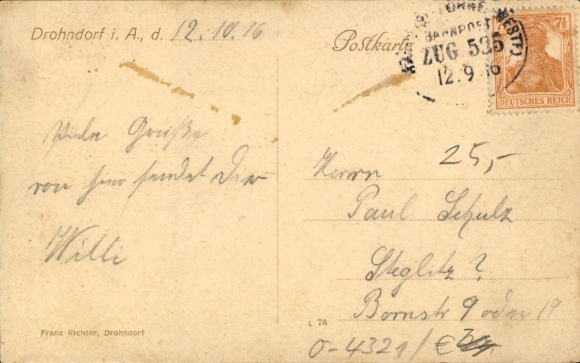 Drohndorf i. A., d. 12.10.16
Postkarte
BAHNPOST
ZUG 535
12.9.16
7½
DEUTSCHES REICH
Viele Grüße
von hier sendet Dir
Willi
25,-
Herrn
Paul Schulz
Steglitz?
Bornstr 9 oder 19
L 76
Franz Richter, Drohndorf
O-4321/€